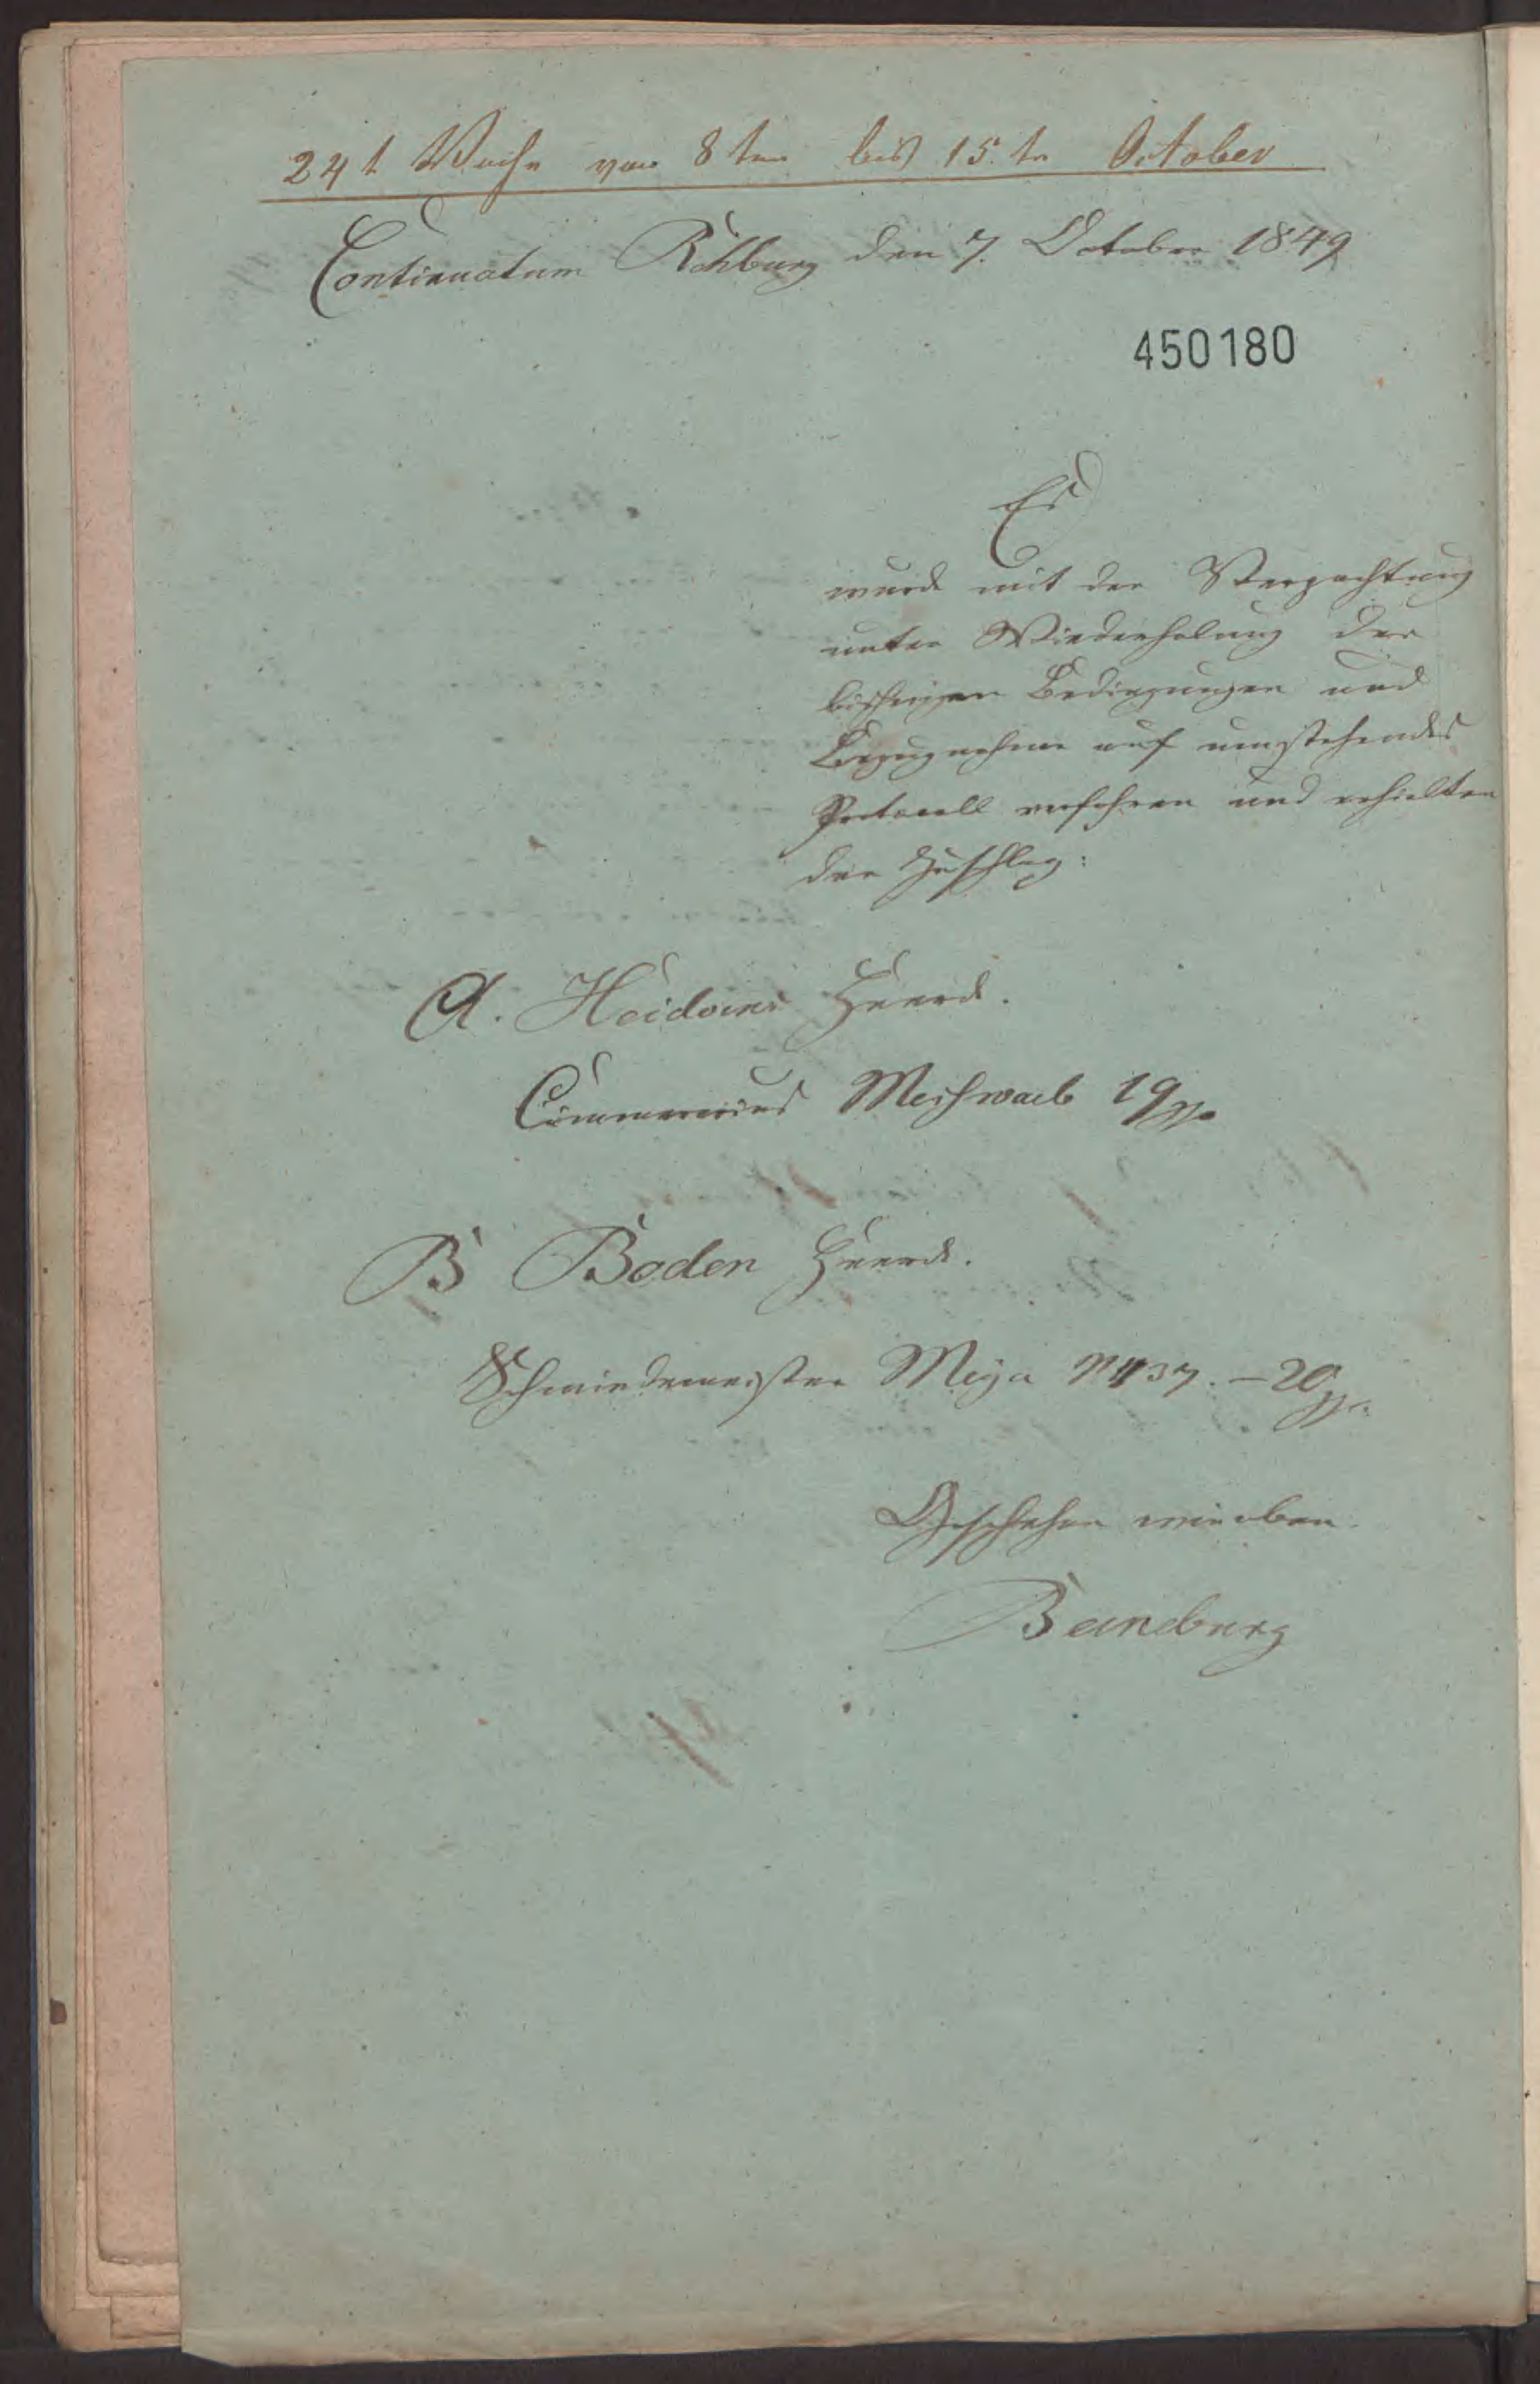 24t Woche von 8ten bis 15.ten October
Continuatum Rehburg den 7. October 1849
450180
Es
wurde mit der Verpachtung
unter Wiederholung der
bisherigen Bedingungen und
Bezugnahme auf umstehendes
Protocoll verfahren und erhielten
den Zuschlag:
A. Heidorns Heerde.
19
B Boden Heerde.
Schmiedemeister Meÿer N 37. – 20
Geschehen wie oben.